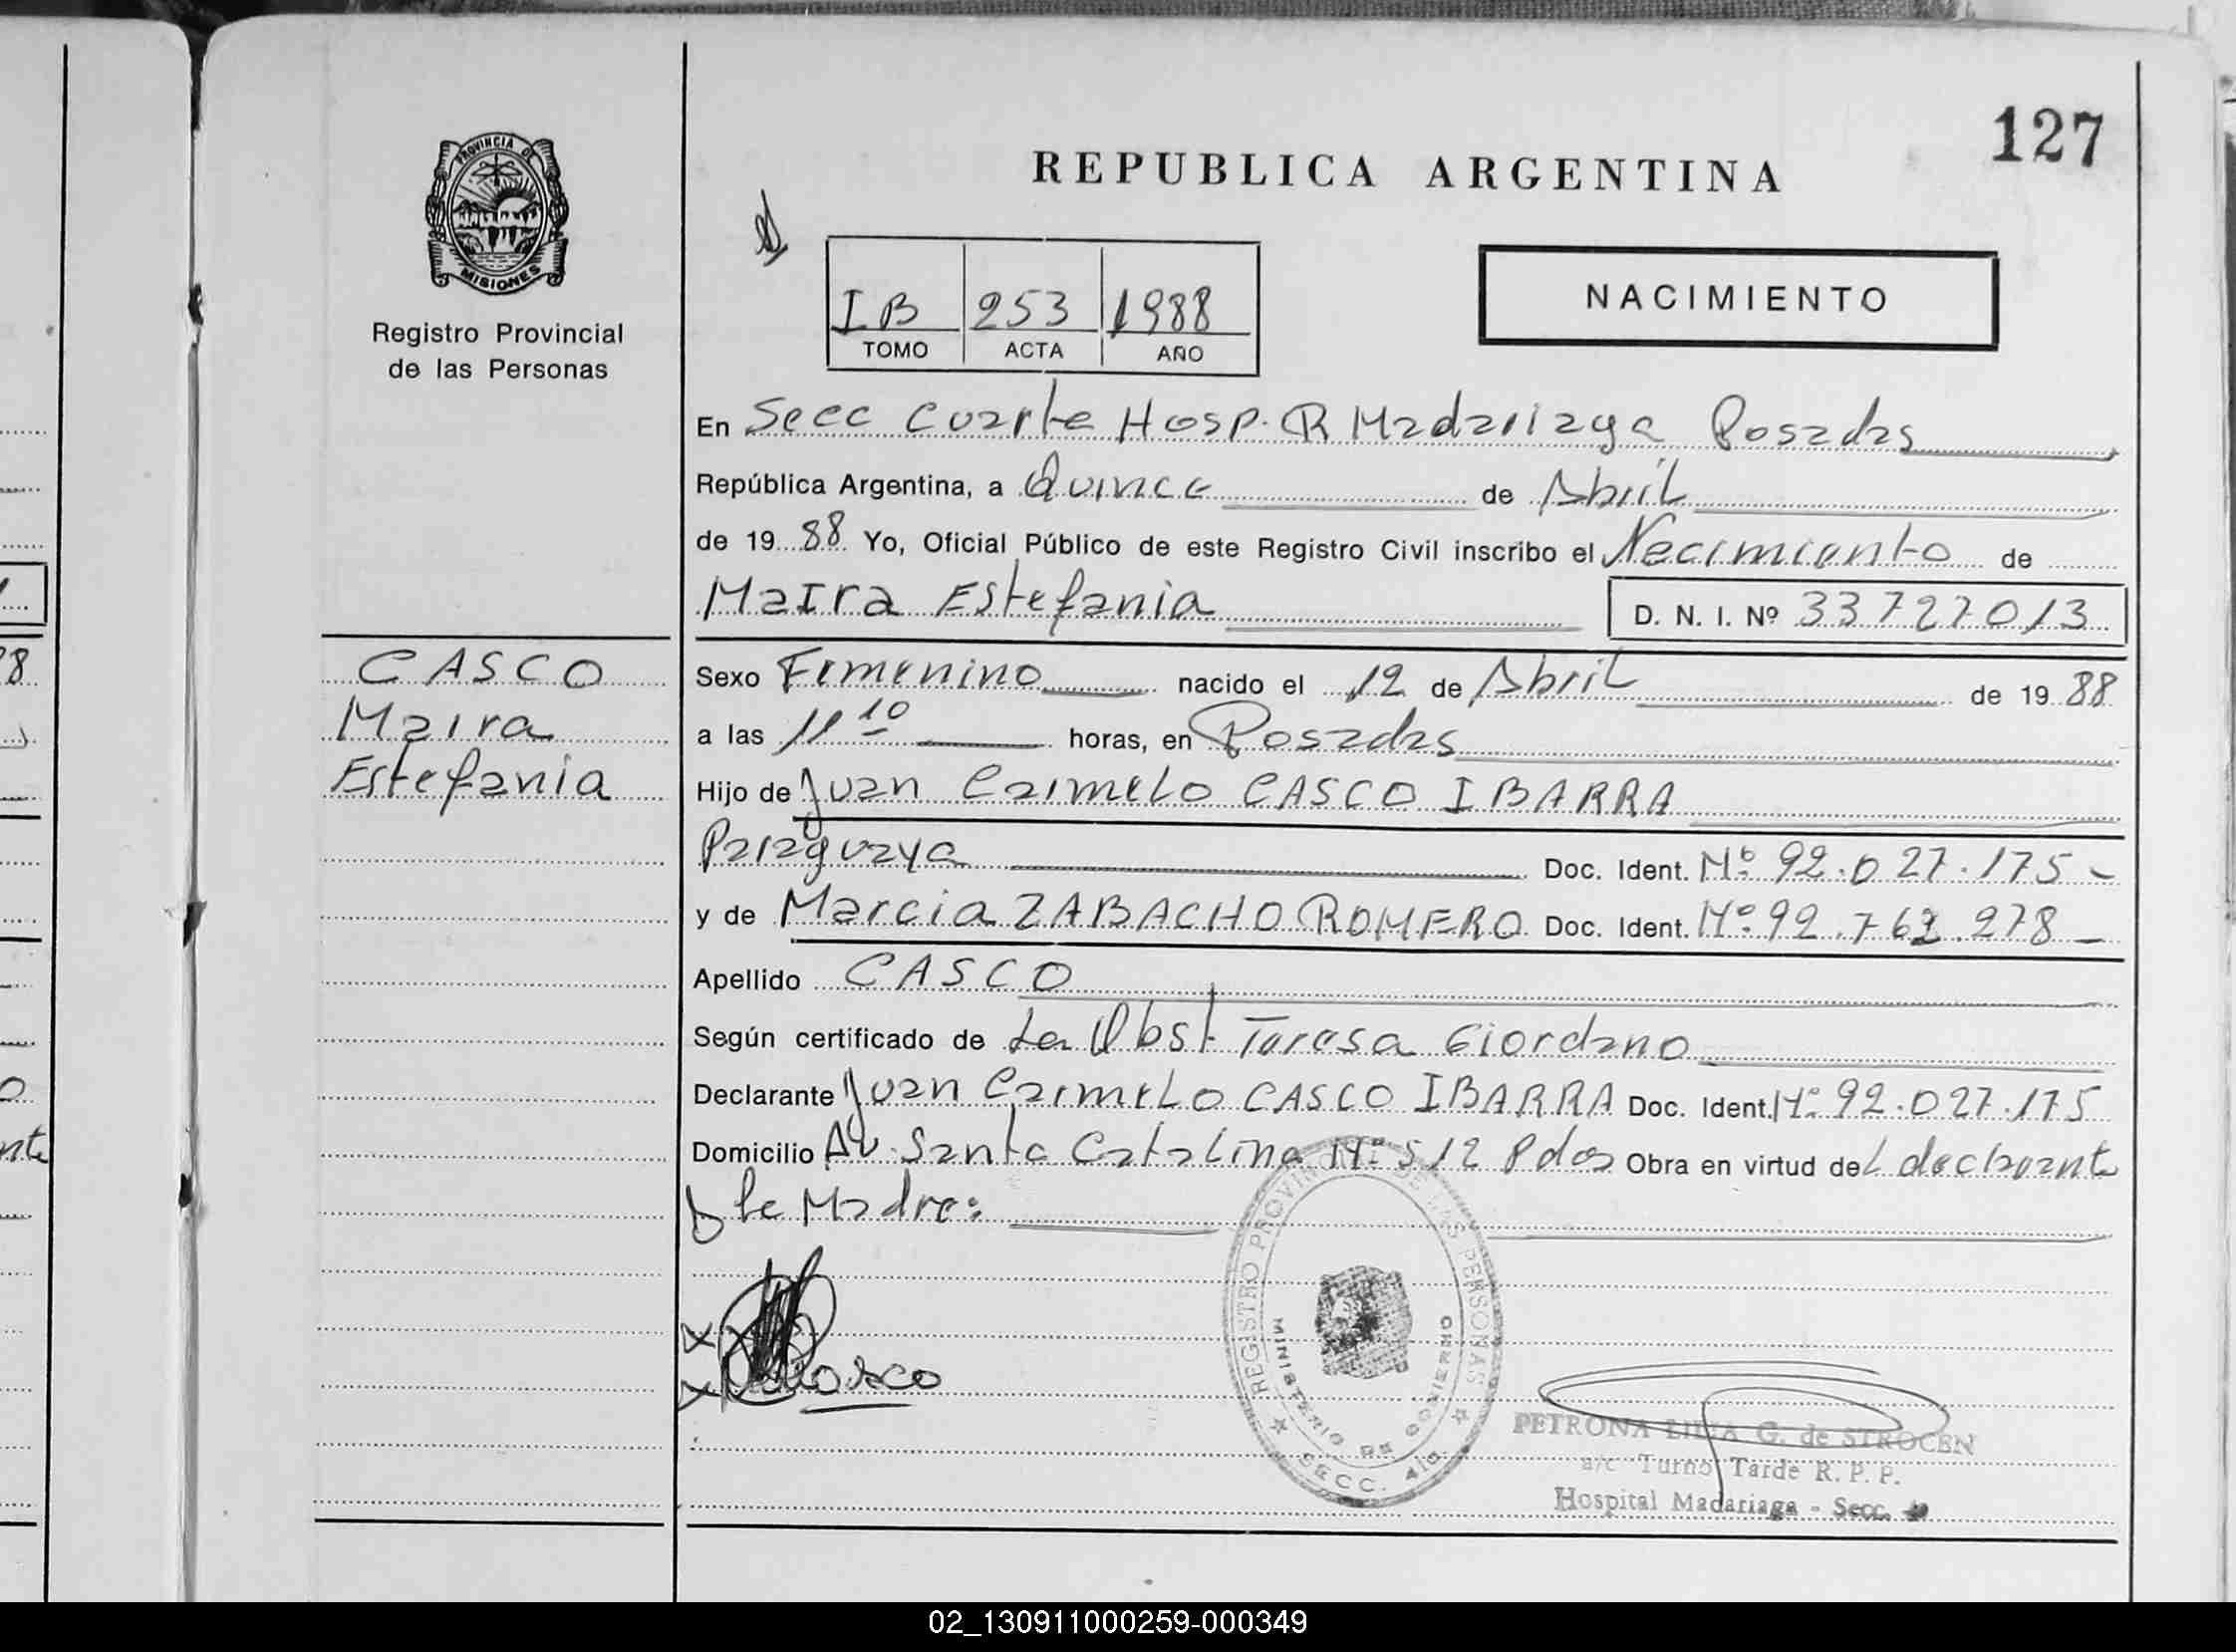 127
REPUBLICA ARGENTINA
PROVINCIA DE
MISIONES
Registro Provincial
de las Personas
I B 253 1988
TOMO ACTA AÑO
NACIMIENTO
En Secc Cuarta Hosp. R Madariaga Posadas
República Argentina, a Quince de Abril
de 19 88 Yo, Oficial Público de este Registro Civil inscribo el Nacimiento de
Maira Estefania D. N. I. Nº 33727013
CASCO
Maira
Estefania
Sexo Femenino nacido el 12 de Abril de 19 88
a las 11 10 horas, en Posadas
Hijo de Juan Carmelo CASCO IBARRA
Paraguaya Doc. Ident. Nº 92.027.175-
y de Marcia ZABACHO ROMERO Doc. Ident. Nº 92.762.278-
Apellido CASCO
Según certificado de La Obst Teresa Giordano
Declarante Juan Carmelo CASCO IBARRA Doc. Ident. Nº 92.027.175
Domicilio Av. Santa Catalina Nº 512 Pdas Obra en virtud del declarante
y la Madre:
REGISTRO PROVINCIAL DE LAS PERSONAS
MINISTERIO DE GOBIERNO
SECC. 4ta.
PETRONA LILIA G. de STROCEN
a/c Turno Tarde R. P. P.
Hospital Madariaga - Secc.
02_130911000259-000349